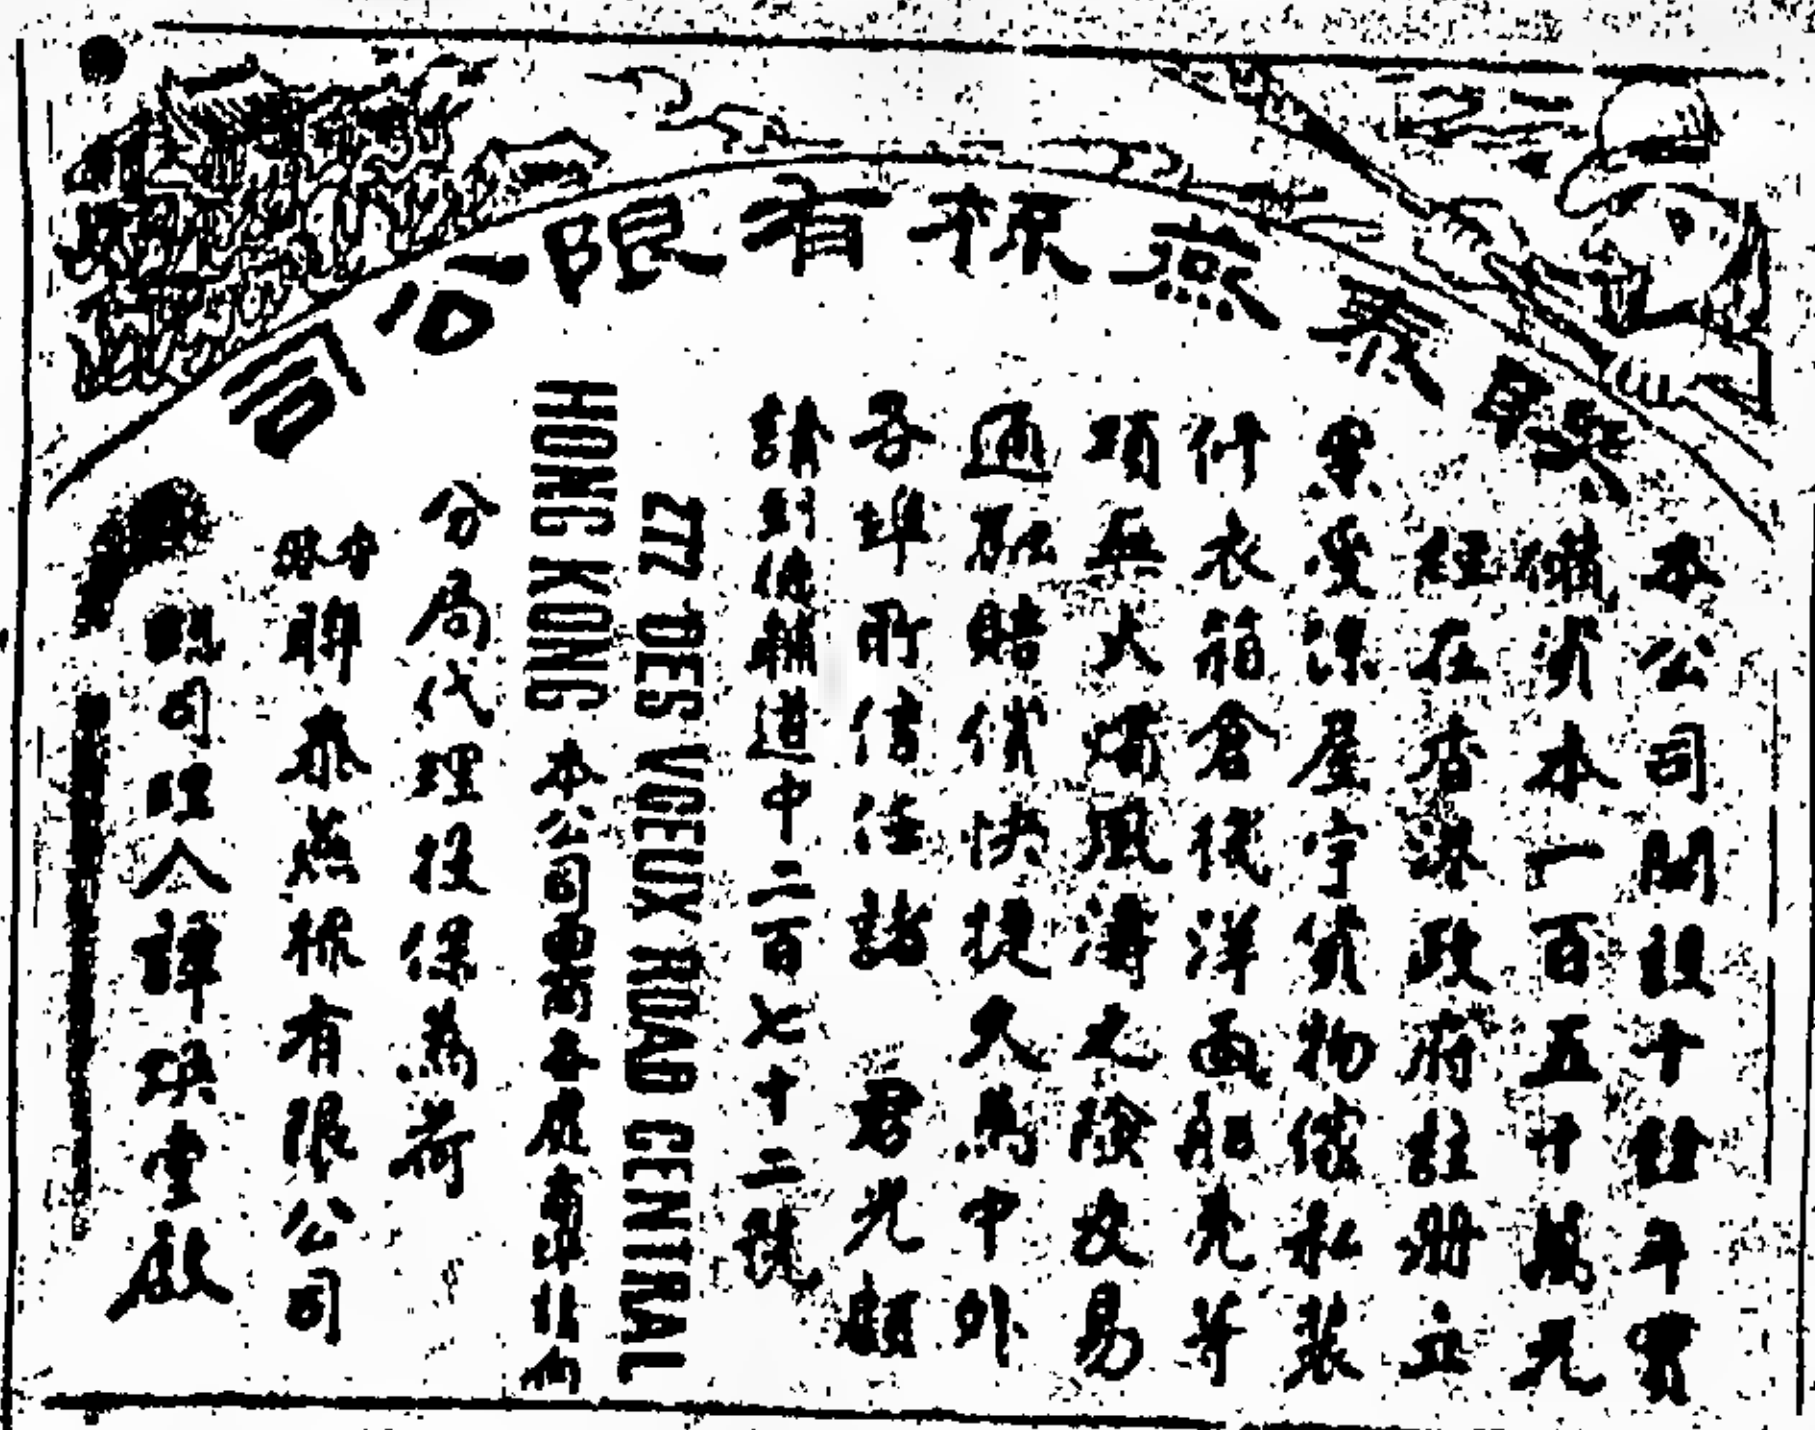 聯泰燕梳有限公司
本公司開設十餘年實
備資本一百五十萬元
經在香港政府註冊立
案受保屋宇貨物傢私裝
件衣箱倉棧洋面船壳等
項無火燭風濤之險交易
通融賠償快捷久為中外
各埠所信任諸 君光顧
請到德輔道中二百七十二號
272 DES VOEUX ROAD CENTRAL
HONG KONG 本公司各屬商埠請向
分局代理投保為荷
香港聯泰燕梳有限公司
總司理人譚堂啟